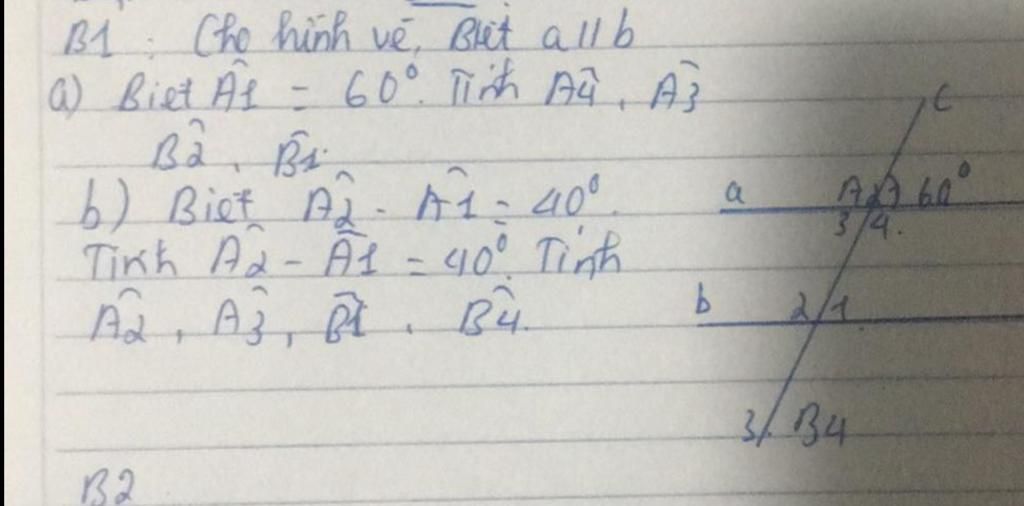 B1: Cho hình vẽ, Biết a // b
a) Biết Â1 = 60°. Tính Â4, Â3
B̂2, B̂1.
b) Biết Â2 - Â1 = 40°.
Tính Â2 - Â1 = 40°. Tính
Â2, Â3, B̂1, B̂4.
c
a A 2 1 60°
3 4.
b 2 1
3 B4
B2